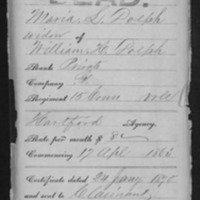 DEAD.
Maria L. Dolph
widow of
William H. Dolph
Rank Priv't
Company
Regiment 15 Conn Vols
Hartford Agency.
Rate per month $ 8
Commencing 17 Apl 1863
Certificate dated 22 Jany 18
and sent to Claimant